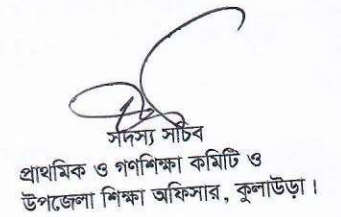 সদস্য সচিব
প্রাথমিক ও গণশিক্ষা কমিটি ও
উপজেলা শিক্ষা অফিসার, কুলাউড়া।